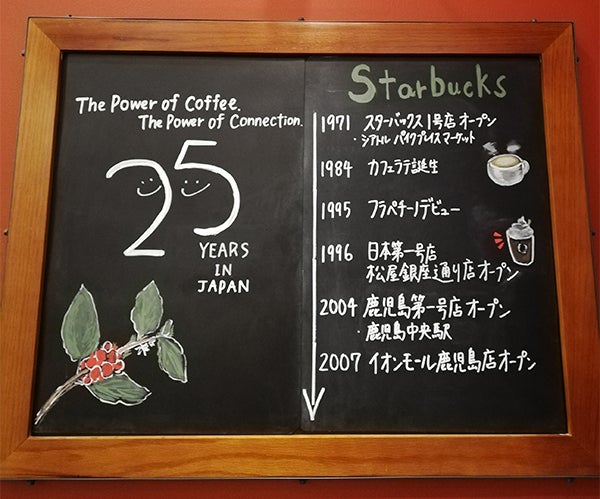 The Power of Coffee.
The Power of Connection.
25
YEARS
IN
JAPAN
Starbucks
1971 スターバックス1号店オープン
・シアトル パイクプレイスマーケット
1984 カフェラテ誕生
1995 フラペチーノデビュー
1996 日本第一号店
松屋銀座通り店オープン
2004 鹿児島第一号店オープン
・鹿児島中央駅
2007 イオンモール鹿児島店オープン